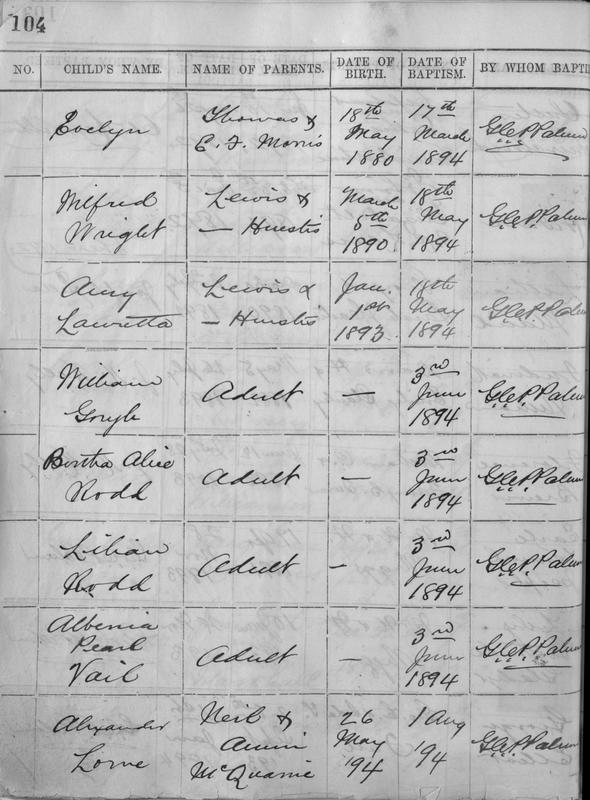 104
NO. CHILD'S NAME. NAME OF PARENTS. DATE OF BIRTH. DATE OF BAPTISM. BY WHOM BAPTI
Evelyn Thomas & E. F. Morris 18th May 1880 17th March 1894 G.C.P. Palmer
Wilfred Wright Lewis & — Huestis March 5th 1890 18th May 1894 G.C.P. Palmer
Amy Lauretta Lewis & — Huestis Jan. 1st 1893 18th May 1894 G.C.P. Palmer
William Adult — 3rd June 1894 G.C.P. Palmer
Bertha Alice Rodd Adult — 3rd June 1894 G.C.P. Palmer
Lilian Rodd Adult — 3rd June 1894 G.C.P. Palmer
Albenia Pearl Vail Adult — 3rd June 1894 G.C.P. Palmer
Alexander Lorne Neil & Annie McQuarrie 26 May '94 1 Aug '94 G.C.P. Palmer